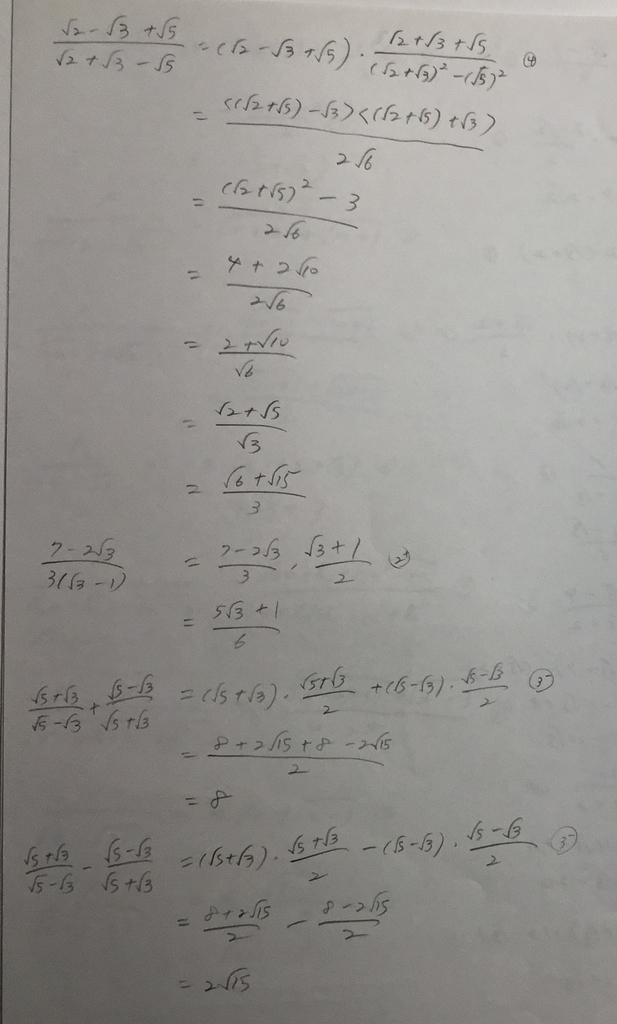 (√2 - √3 + √5)/(√2 + √3 - √5) = (√2 - √3 + √5) · (√2 + √3 + √5)/((√2 + √3)² - (√5)²) ④
= <(√2 + √5) - √3><(√2 + √5) + √3>/2√6
= ((√2 + √5)² - 3)/2√6
= (4 + 2√10)/2√6
= (2 + √10)/√6
= (√2 + √5)/√3
= (√6 + √15)/3
(7 - 2√3)/(3(√3 - 1)) = (7 - 2√3)/3 · (√3 + 1)/2
= (5√3 + 1)/6
(√5 + √3)/(√5 - √3) + (√5 - √3)/(√5 + √3) = (√5 + √3) · (√5 + √3)/2 + (√5 - √3) · (√5 - √3)/2
= (8 + 2√15 + 8 - 2√15)/2
= 8
(√5 + √3)/(√5 - √3) - (√5 - √3)/(√5 + √3) = (√5 + √3) · (√5 + √3)/2 - (√5 - √3) · (√5 - √3)/2
= (8 + 2√15)/2 - (8 - 2√15)/2
= 2√15